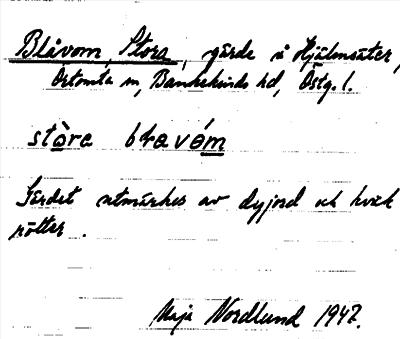 Blåvom, Stora, gärde å Hjälmsäter,
Örtomta sn, Bankekinds hd, Östg. l.
stòra blavóm
Gärdet utmärkes av dyjord och kvick
rötter.
Maja Nordlund 1947.